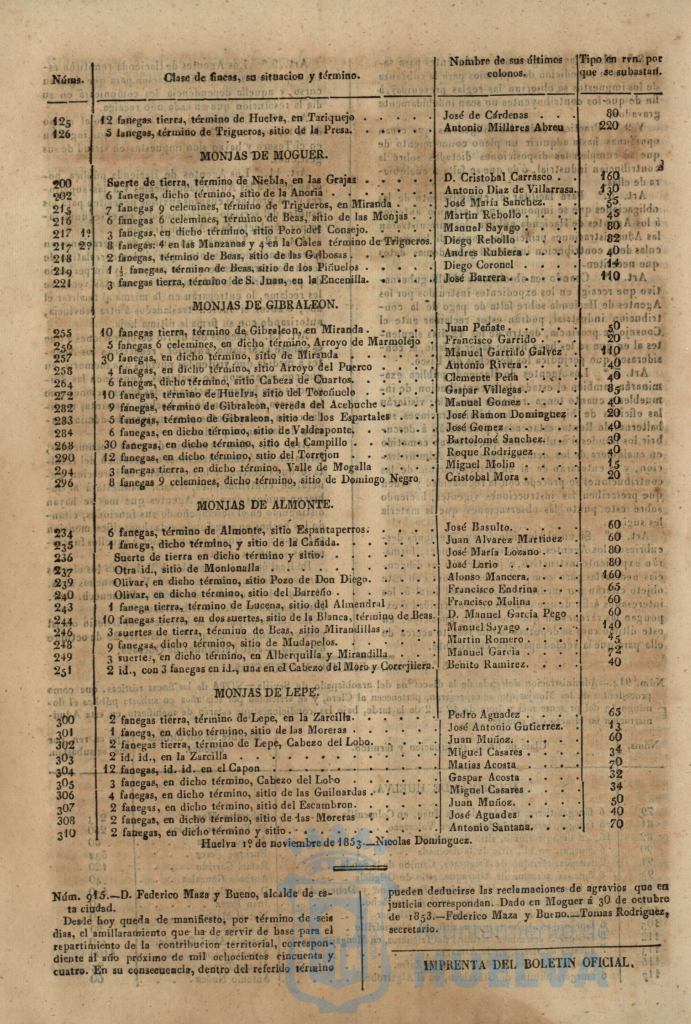 Núms. Clase de fincas, su situacion y término. Nombre de sus últimos colonos. Tipo en rvn. por que se subastan.
125 12 fanegas tierra, término de Huelva, en Tariquejo José de Cárdenas 80
126 5 fanegas, término de Trigueros, sitio de la Presa. Antonio Millares Abreu 220
MONJAS DE MOGUER.
200 Suerte de tierra, término de Niebla, en las Grajas D. Cristobal Carrasco 160
202 6 fanegas, dicho término, sitio de la Anoria Antonio Diaz de Villarrasa. 130
215 7 fanegas 9 celemines, término de Trigueros, en Miranda José María Sanchez. 55
216 6 fanegas 6 celemines, término de Beas, sitio de las Monjas Martin Rebollo 45
217 1º 3 fanegas, en dicho término, sitio Pozo del Consejo. Manuel Sayago 80
217 2º 8 fanegas: 4 en las Manzanas y 4 en la Calea término de Trigueros. Diego Rebollo 82
218 2 fanegas, término de Beas, sitio de las Gambosas Andres Rubiera 40
219 1 ½ fanegas, término de Beas, sitio de los Piñuelos Diego Coronel 14
221 3 fanegas tierra, término de S. Juan, en la Encenilla. José Barrera 110
MONJAS DE GIBRALEON.
255 10 fanegas tierra, término de Gibraleon, en Miranda Juan Peñate 50
256 5 fanegas 6 celemines, en dicho término, Arroyo de Marmolejo Francisco Garrido 20
257 30 fanegas, en dicho término, sitio de Miranda Manuel Garrido Galvez 110
258 4 fanegas, en dicho término, sitio Arroyo del Puerco Antonio Rivera 40
264 6 fanegas, dicho término, sitio Cabeza de Cuartos. Clemente Peña 40
272 10 fanegas, término de Huelva, sitio del Toroñuelo Gaspar Villegas 85
282 9 fanegas, término de Gibraleon, vereda del Acebuche Manuel Gomez 40
283 5 fanegas, término de Gibraleon, sitio de los Espartales José Ramon Dominguez 20
284 6 fanegas, en dicho término, sitio de Valdeaponte. José Gomez 40
268 30 fanegas, en dicho término, sitio del Campillo Bartolomé Sanchez. 30
290 12 fanegas, en dicho término, sitio del Torrejon Roque Rodriguez 40
294 3 fanegas tierra, en dicho término, Valle de Mogalla Miguel Molin 15
296 8 fanegas 9 celemines, dicho término, sitio de Domingo Negro Cristobal Mora 20
MONJAS DE ALMONTE.
234 6 fanegas, término de Almonte, sitio Espantaperros. José Basulto. 60
235 1 fanega, dicho término, y sitio de la Cañada. Juan Alvarez Martinez 60
236 Suerte de tierra en dicho término y sitio. José María Lozano 80
237 Otra id., sitio de Monlonalla José Lario 80
239 Olivar, en dicho término, sitio Pozo de Don Diego. Alonso Mancera. 160
240 Olivar, en dicho término, sitio del Barreño Francisco Endrina 65
243 1 fanega tierra, término de Lucena, sitio del Almendral Francisco Molina 60
244 10 fanegas tierra, en dos suertes, sitio de la Blanca, término de Beas. D. Manuel García Pego 60
246 3 suertes de tierra, término de Beas, sitio Mirandillas Manuel Sayago 140
248 9 fanegas, dicho término, sitio de Mudapelos. Martin Romero 45
249 3 suertes, en dicho término, en Alberquilla y Mirandilla Manuel Garcia 72
251 2 id., con 3 fanegas en id., una en el Cabezo del Moro y Correjilera. Benito Ramirez. 40
MONJAS DE LEPE.
300 2 fanegas tierra, término de Lepe, en la Zarcilla. Pedro Aguadez 65
301 1 fanega, en dicho término, sitio de las Moreras José Antonio Gutierrez. 13
302 2 fanegas tierra, término de Lepe, Cabezo del Lobo. Juan Muñoz. 60
303 2 id. id., en la Zarcilla Miguel Casares 34
304 12 fanegas, id. id. en el Capon Matias Acosta 70
305 3 fanegas, en dicho término, Cabezo del Lobo Gaspar Acosta 32
306 4 fanegas, en dicho término, sitio de las Guiloardas Miguel Casares 34
307 2 fanegas, en dicho término, sitio del Escambron. Juan Muñoz. 50
308 2 fanegas, en dicho término, sitio de las Moreras José Aguades 40
310 2 fanegas, en dicho término y sitio Antonio Santana. 70
Huelva 1º de noviembre de 1853.—Nicolas Dominguez.
Núm. 915.—D. Federico Maza y Bueno, alcalde de es-
ta ciudad.
Desde hoy queda de manifiesto, por término de seis
dias, el amillaramiento que ha de servir de base para el
repartimiento de la contribucion territorial, correspon-
diente al año próximo de mil ochocientos cincuenta y
cuatro. En su consecuencia, dentro del referido término
pueden deducirse las reclamaciones de agravios que en
justicia correspondan. Dado en Moguer á 30 de octubre
de 1853.—Federico Maza y Bueno.—Tomas Rodriguez,
secretario.
IMPRENTA DEL BOLETIN OFICIAL.
Ayuntamiento de
HUELVA